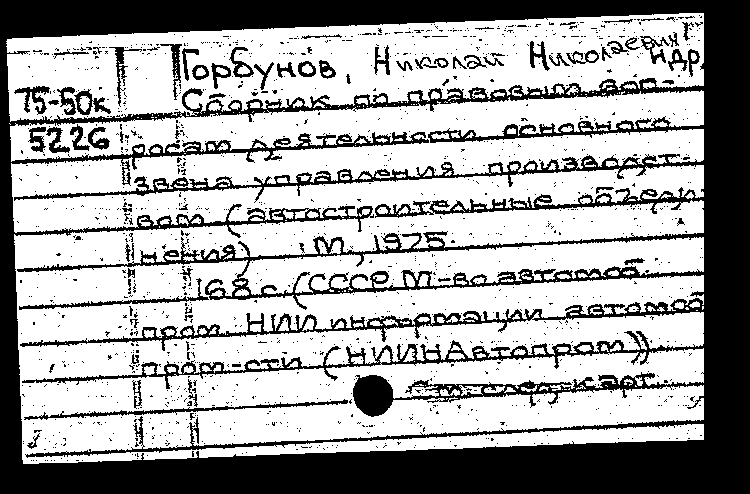 Горбунов, Николай Николаевич и др.
75-50к Сборник по правовым воп-
5226 росам деятельности основного
звена управления производст-
вом (автостроительные объеди-
нения). М., 1975.
168 с. (СССР. М-во автомоб.
пром. НИИ информации автомоб.
пром-сти (НИИНАвтопром))
См. след. карт.